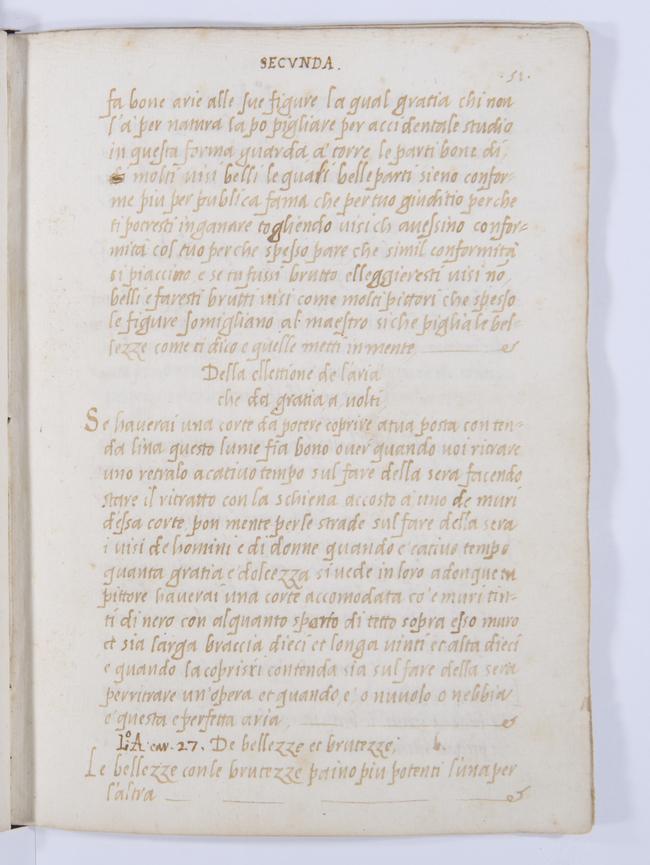 SECVNDA.
.51.
fa bone arie alle sue figure la qual gratia chi non
l'a per natura la po pigliare per accidentale studio
in questa forma guarda a' torre le parti bone di
molti visi belli le quali belle parti sieno confor-
me piu per publica fama che per tuo giuditio perche
ti potresti inganare togliendo visi ch avessino confor=
mita col tuo perche spesso pare che simil conformita
si piaccino e se tu fussi brutto elleggieresti visi no
belli e faresti brutti visi come molti pittori che spesso
le figure somigliano al maestro siche piglia le bel-
lezze come ti dico e quelle metti in mente
Della ellettione de l'aria
che da gratia a volti
Se haverai una corte da potere coprire a tua posta con ten=
da lina questo lume fia bono over quando voi ritrare
uno retralo a cativo tempo sul fare della sera facendo
stare il ritratto con la schiena accosto a' uno de muri
d'essa corte, pon mente per le strade sul fare della sera
i visi de homini e di donne quando e' cativo tempo
quanta gratia e' dolcezza si vede in loro adonque tu
pittore haverai una corte accomodata co' e muri tin-
ti di nero con alquanto sporto di tetto sopra esso muro
et sia larga braccia dieci et longa vinti et alta dieci
e quando fa copristi con tenda sia sul fare della sera
per ritrare un'opera et quando, e', o nuvolo o nebbia
e' questa e perfetta aria
L.o A car. 27. De bellezze et brutezze. b.
Le bellezze con le brutezze paino piu potenti l'una per
l'altra